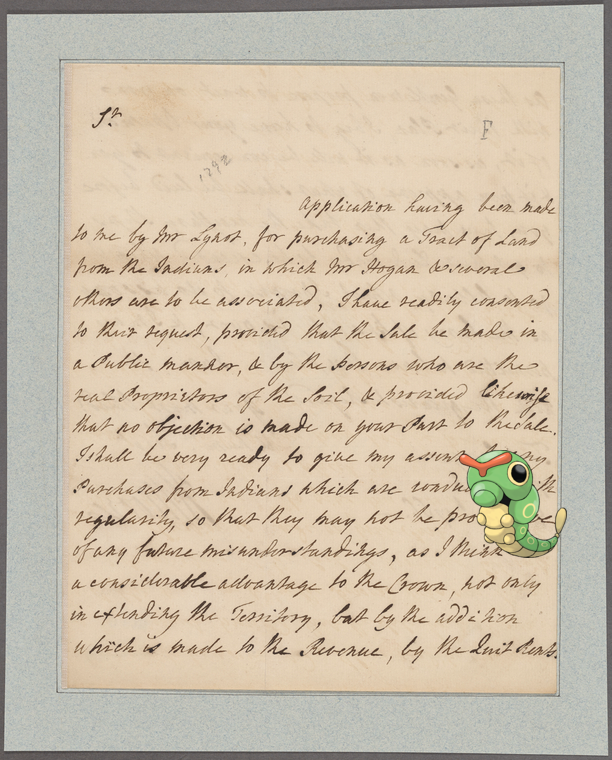 Sr.
F
1292
Application having been made
to me by Mr Lynot, for purchasing a Tract of Land
from the Indians, in which Mr Hogan & several
others are to be associated, I have readily consented
to their request, provided that the Sale be made in
a Public manner, & by the Persons who are the
real Proprietors of the Soil, & provided likewise
that no objection is made on your Part to the Sale.
I shall be very ready to give my assent any
Purchases from Indians which are
regularity, so that they may not be
of any future misunderstandings, as I think
a considerable advantage to the Crown, not only
in extending the Territory, but by the addition
which is made to the Revenue, by the Quit Rents.